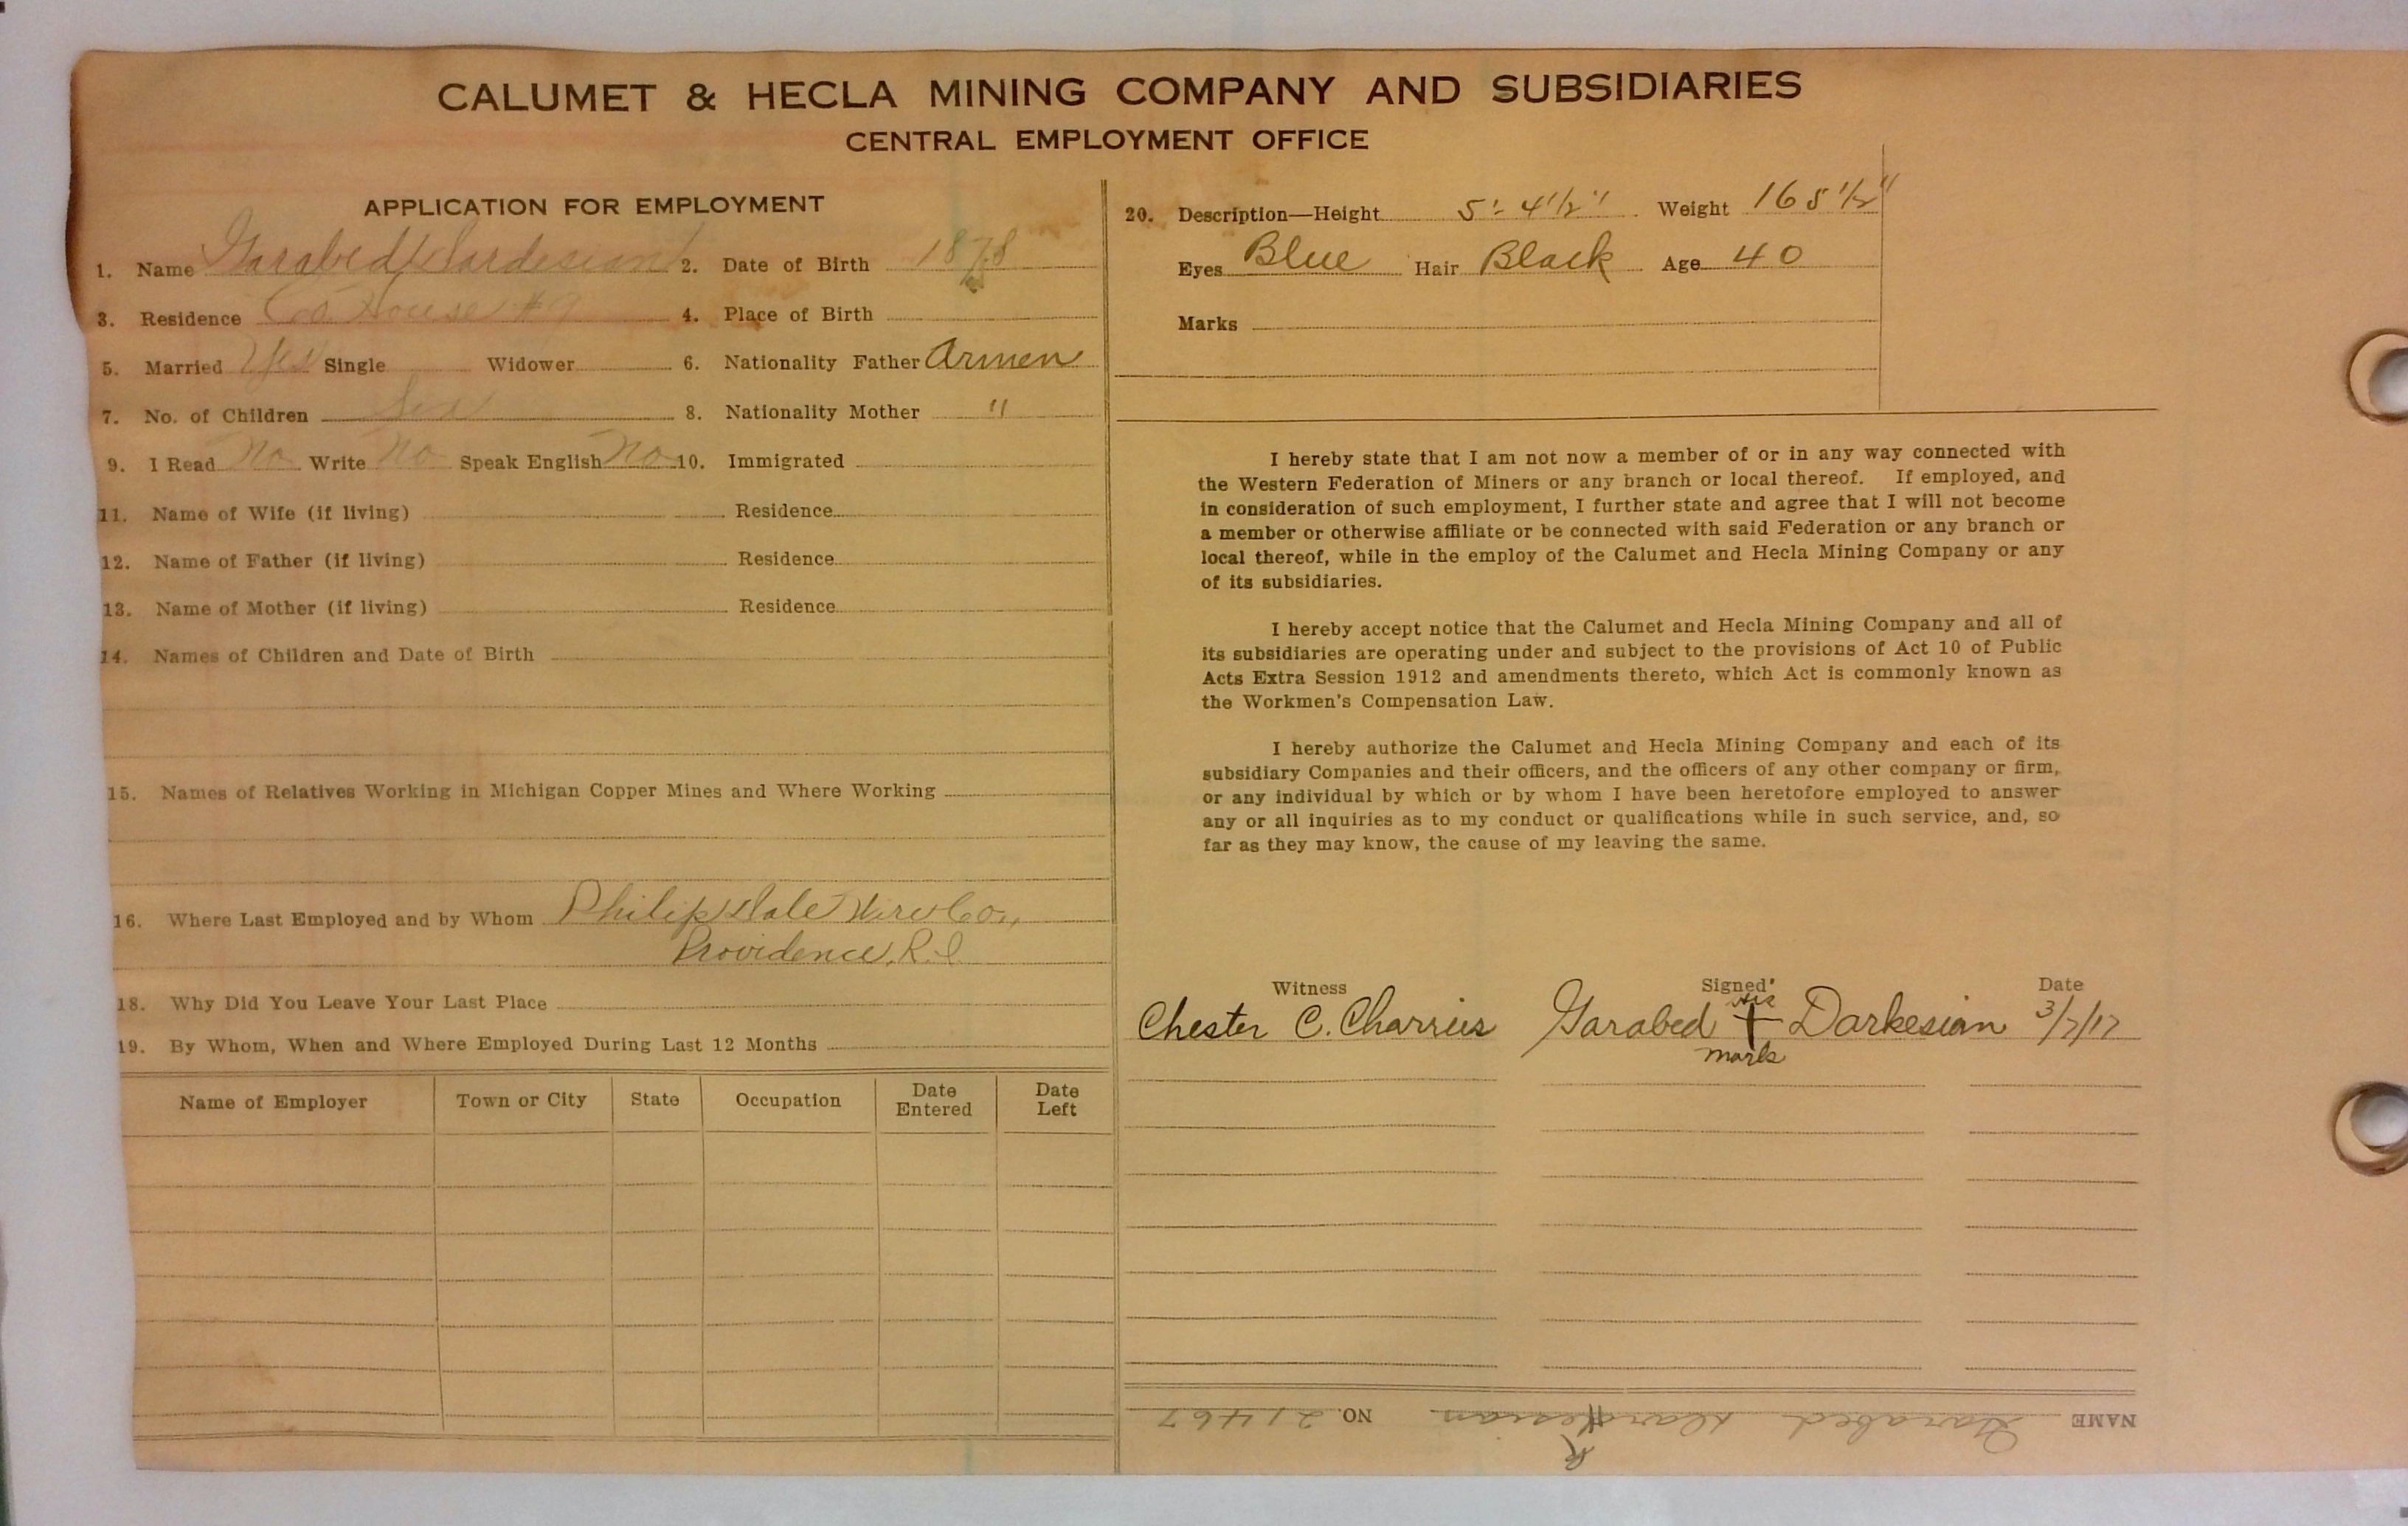 CALUMET & HECLA MINING COMPANY AND SUBSIDIARIES
CENTRAL EMPLOYMENT OFFICE
APPLICATION FOR EMPLOYMENT
1. Name Garabed Dardesian 2. Date of Birth 1878
3. Residence Co House #9 4. Place of Birth
5. Married Yes Single Widower 6. Nationality Father Armen
7. No. of Children Six 8. Nationality Mother "
9. I Read No Write No Speak English No 10. Immigrated
11. Name of Wife (if living) Residence
12. Name of Father (if living) Residence
13. Name of Mother (if living) Residence
14. Names of Children and Date of Birth
15. Names of Relatives Working in Michigan Copper Mines and Where Working
16. Where Last Employed and by Whom Philipsdale Wire Co.,
Providence, R.I.
18. Why Did You Leave Your Last Place
19. By Whom, When and Where Employed During Last 12 Months
Name of Employer Town or City State Occupation Date Entered Date Left
20. Description—Height 5'- 4 1/2" Weight 165 1/2"
Eyes Blue Hair Black Age 40
Marks
I hereby state that I am not now a member of or in any way connected with
the Western Federation of Miners or any branch or local thereof. If employed, and
in consideration of such employment, I further state and agree that I will not become
a member or otherwise affiliate or be connected with said Federation or any branch or
local thereof, while in the employ of the Calumet and Hecla Mining Company or any
of its subsidiaries.
I hereby accept notice that the Calumet and Hecla Mining Company and all of
its subsidiaries are operating under and subject to the provisions of Act 10 of Public
Acts Extra Session 1912 and amendments thereto, which Act is commonly known as
the Workmen's Compensation Law.
I hereby authorize the Calumet and Hecla Mining Company and each of its
subsidiary Companies and their officers, and the officers of any other company or firm,
or any individual by which or by whom I have been heretofore employed to answer
any or all inquiries as to my conduct or qualifications while in such service, and, so
far as they may know, the cause of my leaving the same.
Witness Signed Date
his
Chester C. Garabed Darkesian 3/7/17
mark
NAME Garabed Darkesian NO. 21467